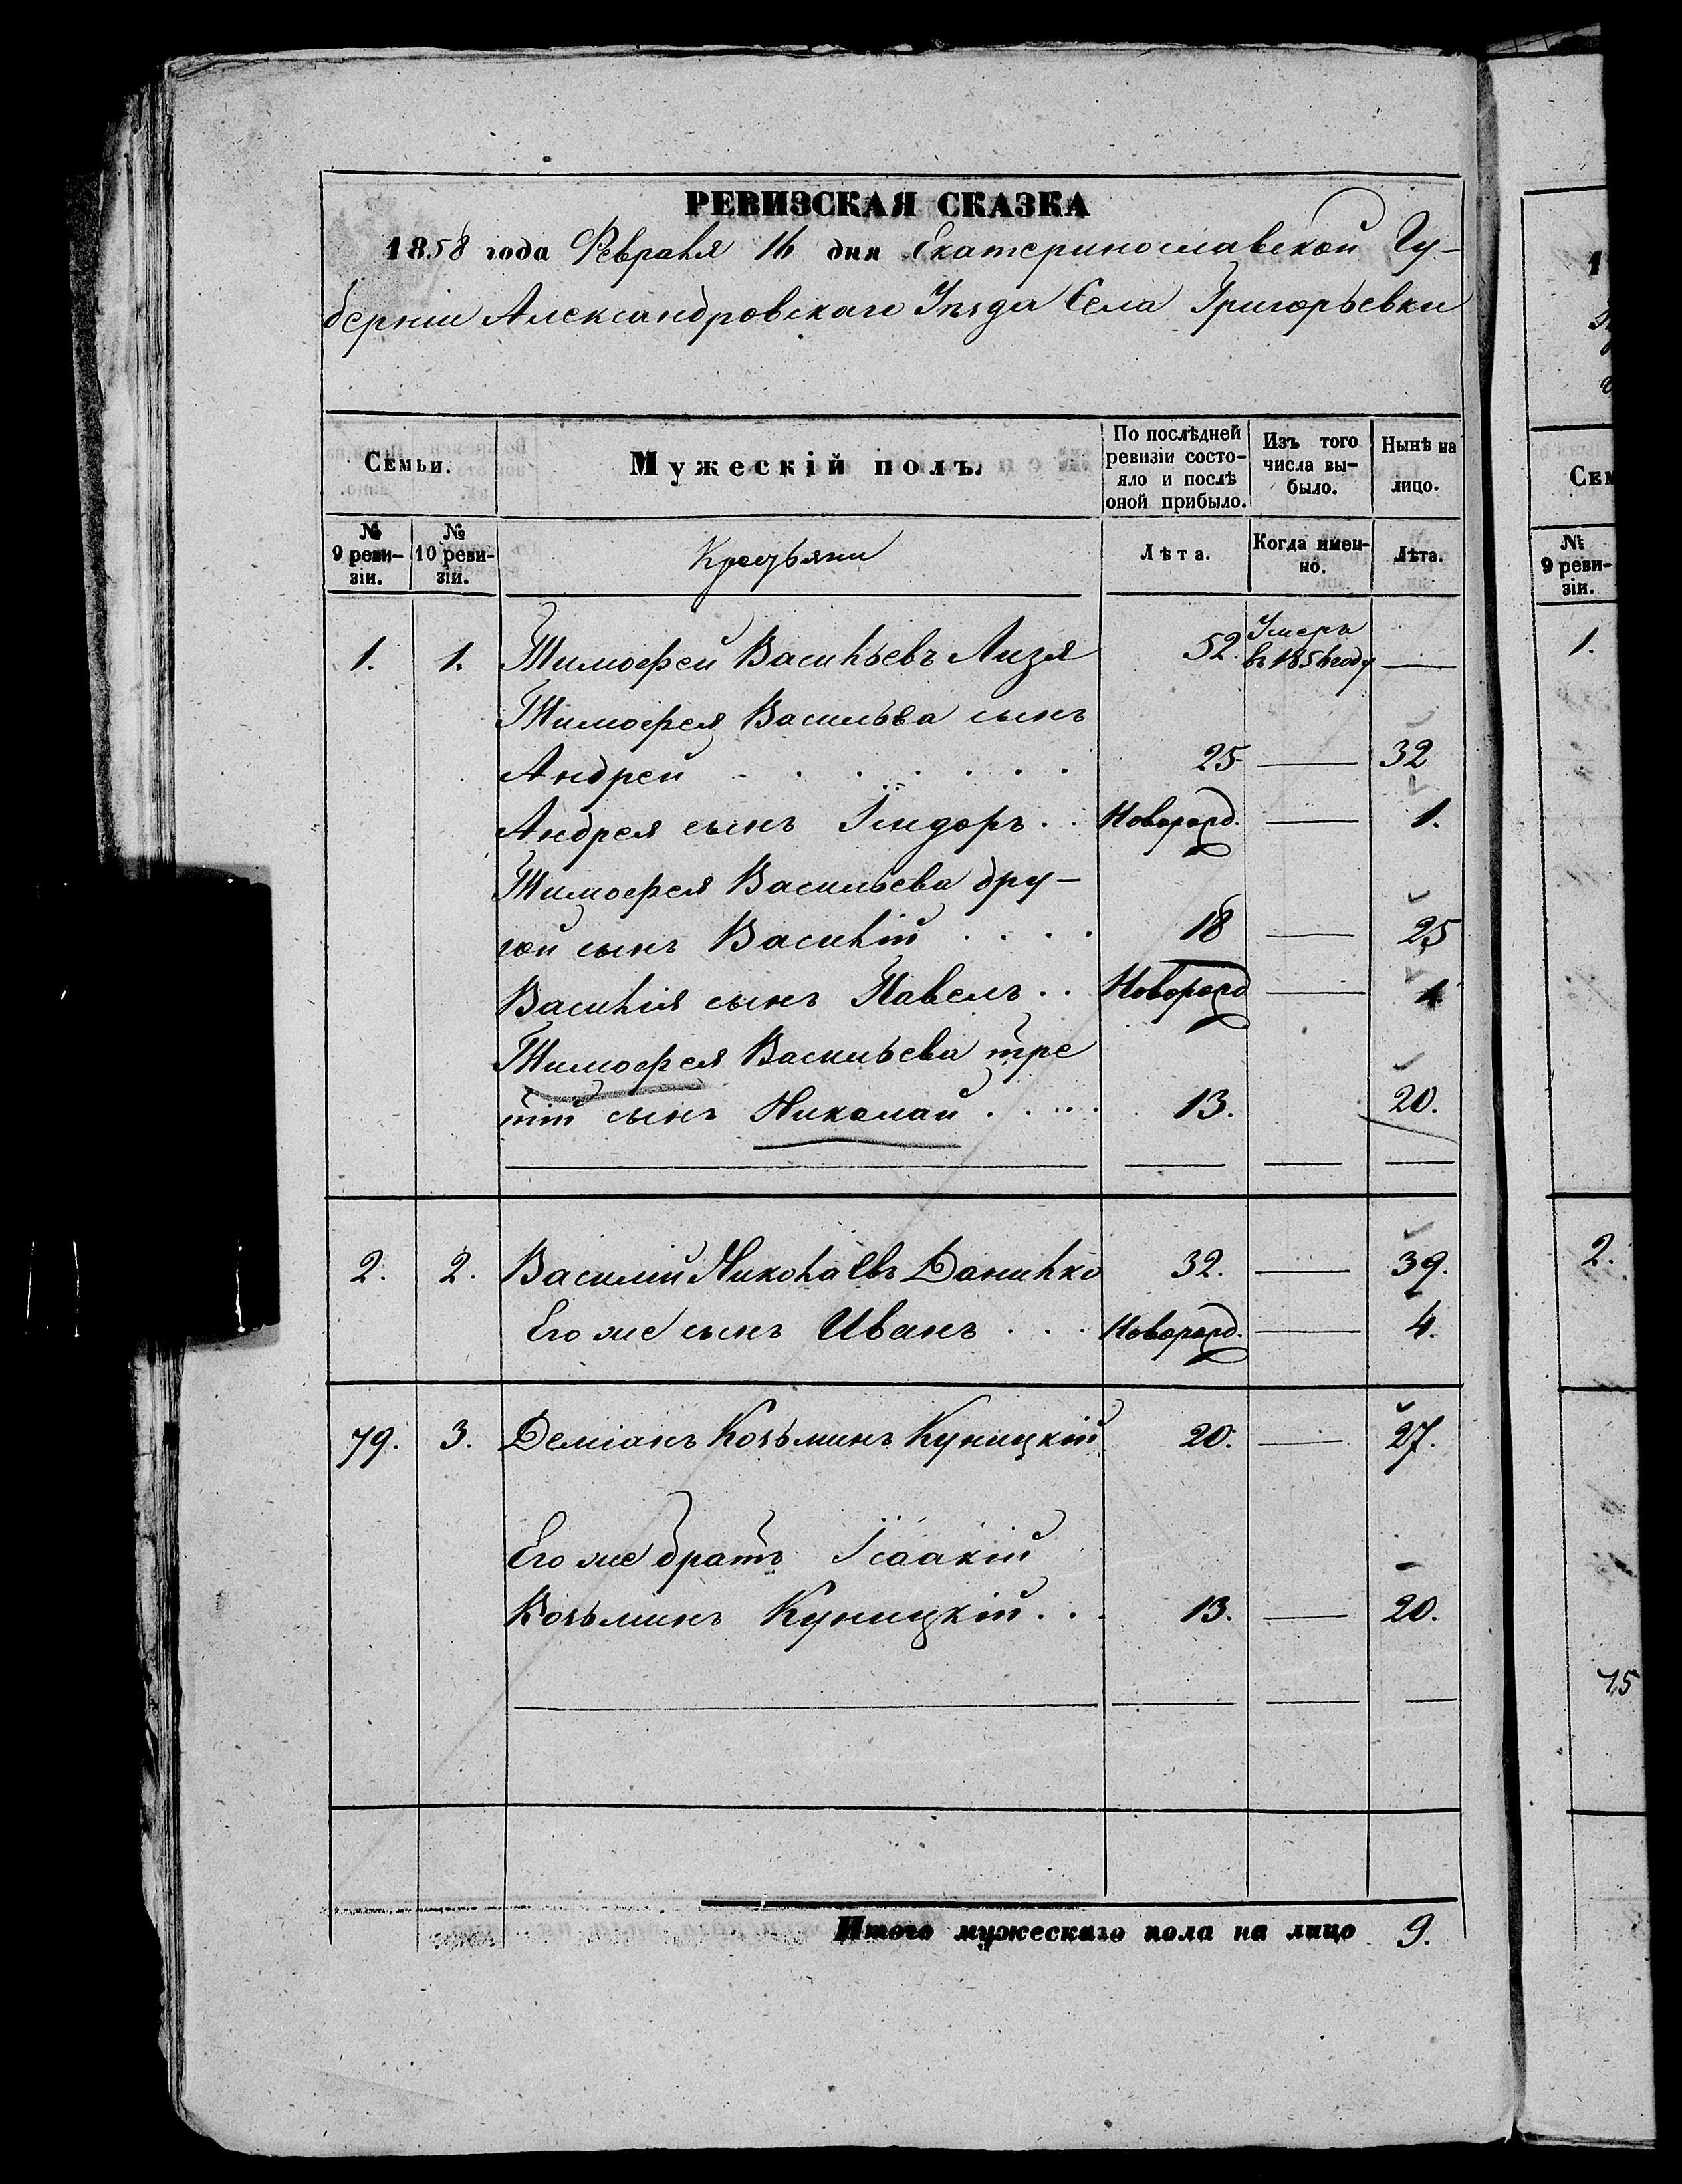 РЕВИЗСКАЯ СКАЗКА
1858 года Февраля 16 дня Екатеринославской Гу-
берніи Александровскаго Уѣзда Села Григорьевки
Семьи. Мужескій полъ. По послѣдней ревизіи состо-яло и послѣ оной прибыло. Изъ того числа вы-было. Нынѣ на лицо.
№ 9 реви-зіи. № 10 реви-зіи. Крестьяни Лѣта. Когда имен-но. Лѣта.
1. 1. Тимофей Васильевъ Лизя 52. Умеръ въ 1856 году —
Тимофея Васильва сынъ
Андрей . . . . . . . 25 — 32
Андрея сынъ Ісидоръ . . Новорожд. — 1.
Тимофея Васильева дру-
гой сынъ Василій . . . . 18 — 25
Василія сынъ Павелъ . . Новорожд — 1
Тимофея Васильева тре
тій сынъ Николай . . . . . 13. 20.
2. 2. Василій Николаевъ Данилко 32. — 39.
Его же сынъ Иванъ . . . Новорожд. — 4.
79. 3. Деміанъ Козьминъ Куницкій 20. — 27.
Его же братъ Ісаакій
Козьминъ Куницкій . . . 13. — 20.
Итого мужескаго пола на лицо 9.
1
Сем
№ 9 реви-зіи.
1.
2.
75